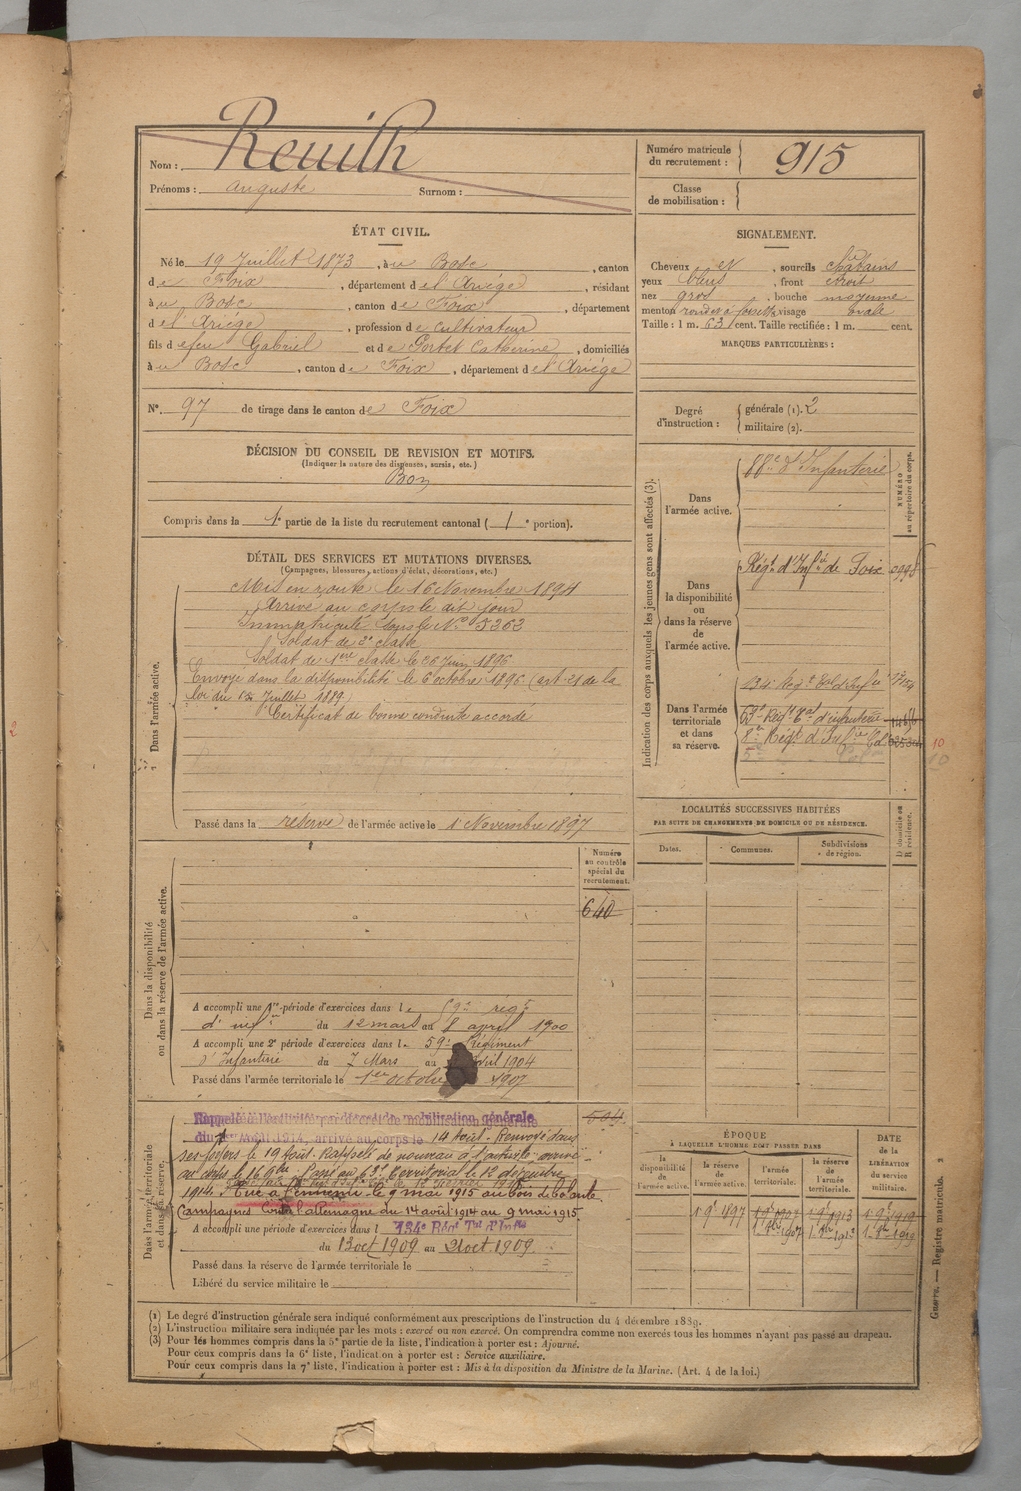 Nom : Reuilh
Prénoms : auguste Surnom :
Numéro matricule du recrutement : 915
Classe de mobilisation :
ÉTAT CIVIL.
Né le 19 Juillet 1873, à u Bosc, canton
d e Foix, département d el Ariége, résidant
à u Bosc, canton d e Foix, département
d el Ariége, profession d e cultivateur
fils d efeu Gabriel et d e Portet Catherine, domiciliés
à u Bosc, canton d e Foix, département d el Ariége
N° 97 de tirage dans le canton de Foix
SIGNALEMENT.
Cheveux et, sourcils chatains
yeux bleus, front étroit
nez gros, bouche moyenne
menton rond et à fossette visage ovale
Taille : 1 m. 63 cent. Taille rectifiée : 1 m. cent.
MARQUES PARTICULIÈRES :
Degré d'instruction : générale (1). 2
militaire (2).
DÉCISION DU CONSEIL DE REVISION ET MOTIFS.
(Indiquer la nature des dispenses, sursis, etc.)
Bon
Compris dans la 1e partie de la liste du recrutement cantonal (1e portion).
DÉTAIL DES SERVICES ET MUTATIONS DIVERSES.
(Campagnes, blessures, actions d'éclat, décorations, etc.)
Dans l'armée active.
Mis en route le 16 Novembre 1894
Arrivé au corps le dit jour
Immatriculé sous le N° 5363
Soldat de 2e classe
Soldat de 1ère classe le 26 Juin 1896
Envoyé dans la disponibilité le 6 octobre 1896 (art. 21 de la
loi du 15 Juillet 1889)
Certificat de bonne conduite accordé
Passé dans la réserve de l'armée active le 1 Novembre 1897
Indication des corps auxquels les jeunes gens sont affectés (3).
NUMÉRO au répertoire du corps.
Dans l'armée active.
88e d'Infanterie
Dans la disponibilité ou dans la réserve de l'armée active.
Régt d'Infie de Foix
Dans l'armée territoriale et dans sa réserve.
134e Regt
10
10
LOCALITÉS SUCCESSIVES HABITÉES
PAR SUITE DE CHANGEMENTS DE DOMICILE OU DE RÉSIDENCE.
Dates. Communes. Subdivisions de région. D domicile ou R résidence.
Dans la disponibilité ou dans la réserve de l'armée active.
Numéro au contrôle spécial du recrutement.
640
A accompli une 1re période d'exercices dans le 59e regt
d'inf du 12 mars au 8 april 1900
A accompli une 2e période d'exercices dans le 59e Régiment
d'Infanterie du 7 Mars au avril 1904
Passé dans l'armée territoriale le 1er octobre 1907
Dans l'armée territoriale et dans sa réserve.
Rappelé à l'activité par décret de mobilisation générale
du 1er Août 1914, arrivé au corps le 14 Août. Renvoyé dans
ses foyers le 19 Août. Rappelé de nouveau à l'activité arrivé
au corps le 16 9bre. Passé au 63e Territorial le 12 décembre
1914. Tué à l'ennemi le 9 mai 1915 au bois de
Campagnes contre l'allemagne du 14 août 1914 au 9 mai 1915.
A accompli une période d'exercices dans l 134e Régt Tal d'Infie
du 13 oct 1909 au 21 oct 1909
Passé dans la réserve de l'armée territoriale le
Libéré du service militaire le
ÉPOQUE
À LAQUELLE L'HOMME DOIT PASSER DANS
la disponibilité de l'armée active. la réserve de l'armée active. l'armée territoriale. la réserve de l'armée territoriale.
DATE DE LA LIBÉRATION DU SERVICE MILITAIRE.
1 9e 1897 1 9e 1907 1 9e 1913 1 9e 1919
1 8bre 1907 1 8bre 1913 1 8bre 1919
Guerre. — Registre matricule. 2
(1) Le degré d'instruction générale sera indiqué conformément aux prescriptions de l'instruction du 4 décembre 1889.
(2) L'instruction militaire sera indiquée par les mots : exercé ou non exercé. On comprendra comme non exercés tous les hommes n'ayant pas passé au drapeau.
(3) Pour les hommes compris dans la 5e partie de la liste, l'indication à porter est : Ajourné.
Pour ceux compris dans la 6e liste, l'indication à porter est : Service auxiliaire.
Pour ceux compris dans la 7e liste, l'indication à porter est : Mis à la disposition du Ministre de la Marine. (Art. 4 de la loi.)